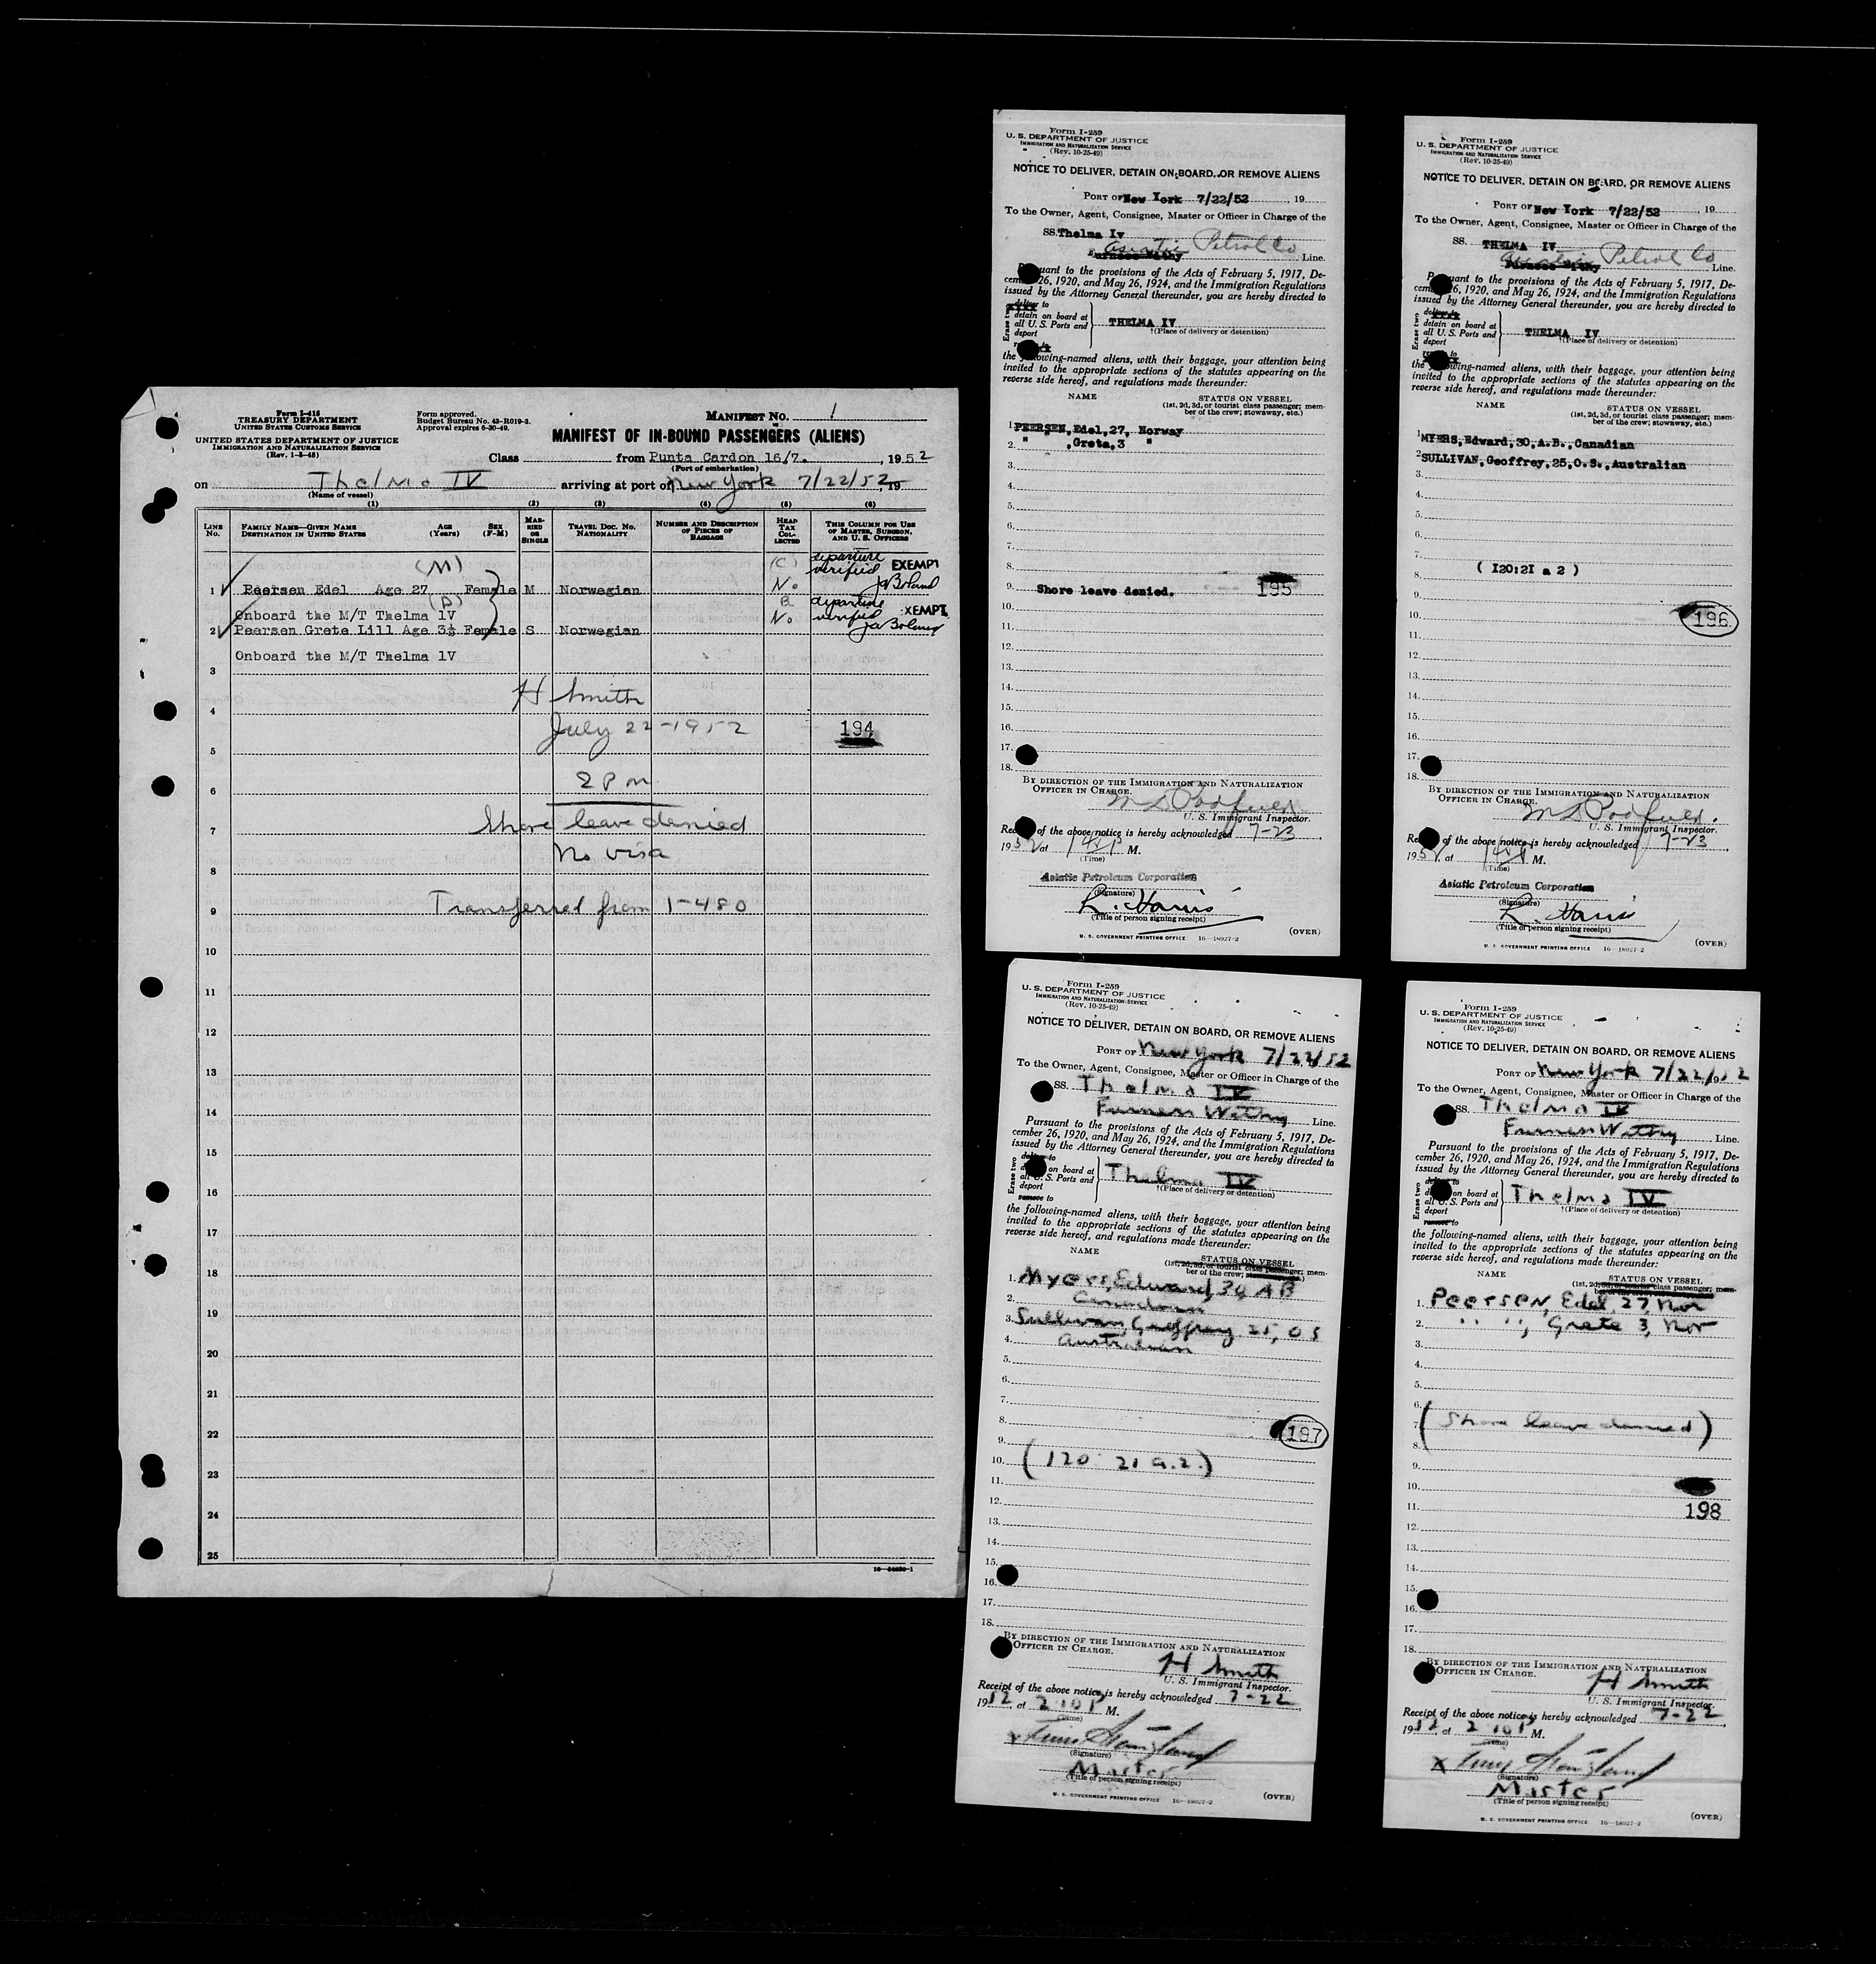 Form I-415
TREASURY DEPARTMENT
UNITED STATES CUSTOMS SERVICE
UNITED STATES DEPARTMENT OF JUSTICE
IMMIGRATION AND NATURALIZATION SERVICE
Form approved.
Budget Bureau No. 43-R019-3.
Approval expires 6-30-49.
MANIFEST NO. 1
MANIFEST OF IN-BOUND PASSENGERS (ALIENS)
Class from Punta Cardon 16/7. , 1952
(Port of embarkation)
on Thelma IV arriving at port of New York 7/22/52, 19
(Name of vessel)
(1) (2) (3) (4) (5) (6)
LINE No.
FAMILY NAME—GIVEN NAME
DESTINATION IN UNITED STATES
AGE (Years)
SEX (F-M)
MARRIED OR SINGLE
TRAVEL DOC. NO.
NATIONALITY
NUMBER AND DESCRIPTION OF PIECES OF BAGGAGE
HEAD TAX COLLECTED
THIS COLUMN FOR USE OF MASTER, SURGEON, AND U. S. OFFICERS
(M) (C) departure
verified EXEMPT
1 Peersen Edel Age 27 Female M Norwegian No
(D) departure
Onboard the M/T Thelma 1V verified XEMPT
2 Peersen Grete Lill Age 3½ Female S Norwegian No
Onboard the M/T Thelma 1V
3
H Smith
4
July 22-1952 194
5
2 Pm
6
Shore leave denied
7
No visa
8
Transferred from 1-480
9
10
11
12
13
14
15
16
17
18
19
20
21
22
23
24
25
Form I-259
U. S. DEPARTMENT OF JUSTICE
IMMIGRATION AND NATURALIZATION SERVICE
(Rev. 10-25-49)
NOTICE TO DELIVER, DETAIN ON BOARD, OR REMOVE ALIENS
PORT OF New York 7/22/52 , 19
To the Owner, Agent, Consignee, Master or Officer in Charge of the
SS. Thelma Iv
Asiatic Petrol Co
Furness Withy Line.
Pursuant to the provisions of the Acts of February 5, 1917, De-
cember 26, 1920, and May 26, 1924, and the Immigration Regulations
issued by the Attorney General thereunder, you are hereby directed to
Erase two
deliver to
detain on board at
all U. S. Ports and
deport
THELMA IV
†(Place of delivery or detention)
the following-named aliens, with their baggage, your attention being
invited to the appropriate sections of the statutes appearing on the
reverse side hereof, and regulations made thereunder:
NAME STATUS ON VESSEL
(1st, 2d, 3d, or tourist class passenger; mem-
ber of the crew; stowaway, etc.)
1. PEERSEN, Edel, 27, Norway
2. " , Greta, 3 "
3.
4.
5.
6.
7.
8.
9. Shore leave denied. 195
10.
11.
12.
13.
14.
15.
16.
17.
18.
BY DIRECTION OF THE IMMIGRATION AND NATURALIZATION
OFFICER IN CHARGE.
U. S. Immigrant Inspector.
Receipt of the above notice is hereby acknowledged 7-23,
1952 at M.
(Time)
Asiatic Petroleum Corporation
(Signature)
L. Harris
(Title of person signing receipt)
U. S. GOVERNMENT PRINTING OFFICE 16—18927-2 (OVER)
Form I-259
U. S. DEPARTMENT OF JUSTICE
IMMIGRATION AND NATURALIZATION SERVICE
(Rev. 10-25-49)
NOTICE TO DELIVER, DETAIN ON BOARD, OR REMOVE ALIENS
PORT OF New York 7/22/52 , 19
To the Owner, Agent, Consignee, Master or Officer in Charge of the
SS. THELMA IV
Asiatic Petrol Co
Furness Withy Line.
Pursuant to the provisions of the Acts of February 5, 1917, De-
cember 26, 1920, and May 26, 1924, and the Immigration Regulations
issued by the Attorney General thereunder, you are hereby directed to
Erase two
deliver to
detain on board at
all U. S. Ports and
deport
THELMA IV
†(Place of delivery or detention)
the following-named aliens, with their baggage, your attention being
invited to the appropriate sections of the statutes appearing on the
reverse side hereof, and regulations made thereunder:
NAME STATUS ON VESSEL
(1st, 2d, 3d, or tourist class passenger; mem-
ber of the crew; stowaway, etc.)
1 MYERS, Edward, 30, A.B., Canadian
2 SULLIVAN, Geoffrey, 25, O.S., Australian
3.
4.
5.
6.
7.
8. ( I20:2I a 2 )
9.
10. 196
11.
12.
13.
14.
15.
16.
17.
18.
BY DIRECTION OF THE IMMIGRATION AND NATURALIZATION
OFFICER IN CHARGE.
U. S. Immigrant Inspector.
Receipt of the above notice is hereby acknowledged 7-23,
1952 at M.
(Time)
Asiatic Petroleum Corporation
(Signature)
L. Harris
(Title of person signing receipt)
U. S. GOVERNMENT PRINTING OFFICE 16—18927-2 (OVER)
Form I-259
U. S. DEPARTMENT OF JUSTICE
IMMIGRATION AND NATURALIZATION SERVICE
(Rev. 10-25-49)
NOTICE TO DELIVER, DETAIN ON BOARD, OR REMOVE ALIENS
PORT OF New York 7/22/52
To the Owner, Agent, Consignee, Master or Officer in Charge of the
SS. Thelma IV
Furness Withy Line.
Pursuant to the provisions of the Acts of February 5, 1917, De-
cember 26, 1920, and May 26, 1924, and the Immigration Regulations
issued by the Attorney General thereunder, you are hereby directed to
Erase two
deliver to
detain on board at
all U. S. Ports and
deport
remove to
Thelma IV
†(Place of delivery or detention)
the following-named aliens, with their baggage, your attention being
invited to the appropriate sections of the statutes appearing on the
reverse side hereof, and regulations made thereunder:
NAME STATUS ON VESSEL
(1st, 2d, 3d, or tourist class passenger; mem-
ber of the crew; stowaway, etc.)
1. Myers, Edward, 30, AB
2. Canadian
3. Sullivan, Geoffrey 25, OS
4. Australian
5.
6.
7.
8. 197
9.
10. (120: 21 a.2.)
11.
12.
13.
14.
15.
16.
17.
18.
BY DIRECTION OF THE IMMIGRATION AND NATURALIZATION
OFFICER IN CHARGE.
H Smith
U. S. Immigrant Inspector.
Receipt of the above notice is hereby acknowledged 7-22,
1952, at 2:10 P M.
(Time)
(Signature)
Master
(Title of person signing receipt)
U. S. GOVERNMENT PRINTING OFFICE 16—18927-2 (OVER)
Form I-259
U. S. DEPARTMENT OF JUSTICE
IMMIGRATION AND NATURALIZATION SERVICE
(Rev. 10-25-49)
NOTICE TO DELIVER, DETAIN ON BOARD, OR REMOVE ALIENS
PORT OF New York 7/22/1952
To the Owner, Agent, Consignee, Master or Officer in Charge of the
SS. Thelma IV
Furness Withy Line.
Pursuant to the provisions of the Acts of February 5, 1917, De-
cember 26, 1920, and May 26, 1924, and the Immigration Regulations
issued by the Attorney General thereunder, you are hereby directed to
Erase two
deliver to
detain on board at
all U. S. Ports and
deport
remove to
Thelma IV
†(Place of delivery or detention)
the following-named aliens, with their baggage, your attention being
invited to the appropriate sections of the statutes appearing on the
reverse side hereof, and regulations made thereunder:
NAME STATUS ON VESSEL
(1st, 2d, 3d, or tourist class passenger; mem-
1. Peersen, Edel, 27, Nor
2. " ", Grete 3, Nor
3.
4.
5.
6.
7. (Shore leave denied)
8.
9.
10.
11. 198
12.
13.
14.
15.
16.
17.
18.
BY DIRECTION OF THE IMMIGRATION AND NATURALIZATION
OFFICER IN CHARGE.
H Smith
U. S. Immigrant Inspector.
Receipt of the above notice is hereby acknowledged 7-22,
1952, at 2:10 P M.
(Time)
(Signature)
Master
(Title of person signing receipt)
U. S. GOVERNMENT PRINTING OFFICE 16—18927-2 (OVER)